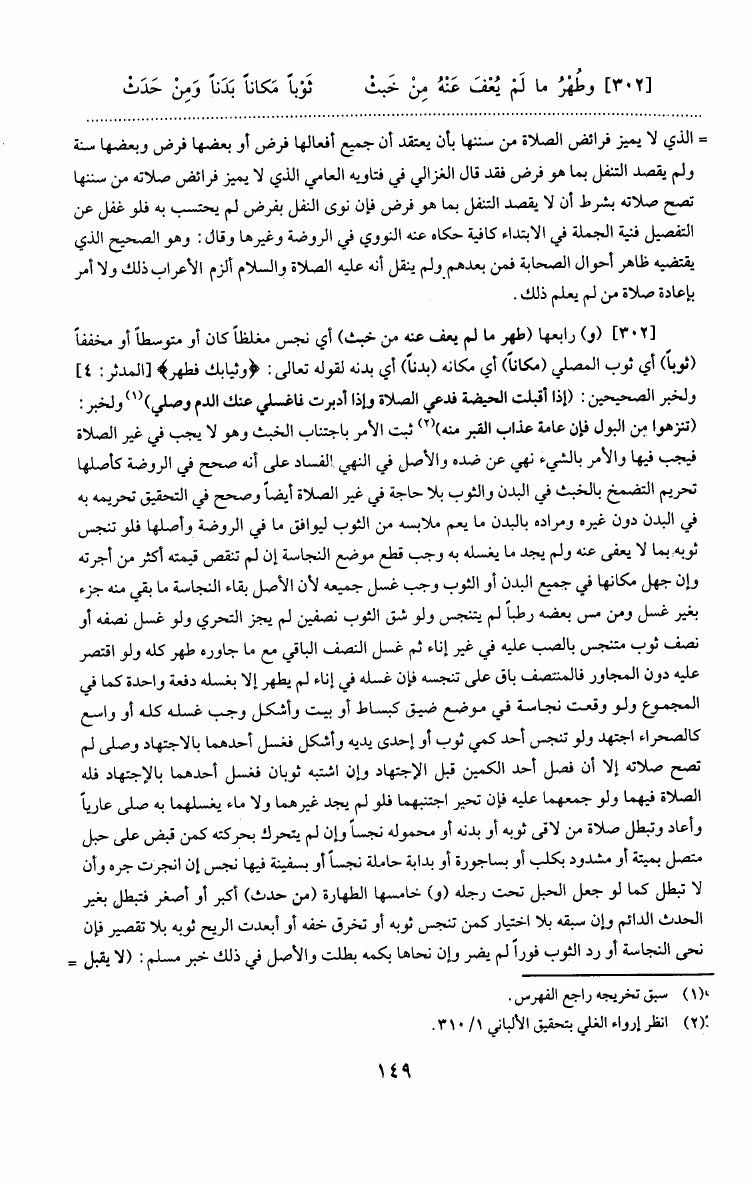 [٣٠٢] وطُهْرُ ما لَمْ يُعْفَ عَنْهُ مِنْ خَبثْ ثَوْباً مَكاناً بَدَناً وَمِنْ حَدَثْ
= الذي لا يميز فرائض الصلاة من سننها بأن يعتقد أن جميع أفعالها فرض أو بعضها فرض وبعضها سنة
ولم يقصد التنفل بما هو فرض فقد قال الغزالي في فتاويه العامي الذي لا يميز فرائض صلاته من سننها
تصح صلاته بشرط أن لا يقصد التنفل بما هو فرض فإن نوى النفل بفرض لم يحتسب به فلو غفل عن
التفصيل فنية الجملة في الابتداء كافية حكاه عنه النووي في الروضة وغيرها وقال: وهو الصحيح الذي
يقتضيه ظاهر أحوال الصحابة فمن بعدهم ولم ينقل أنه عليه الصلاة والسلام ألزم الأعراب ذلك ولا أمر
بإعادة صلاة من لم يعلم ذلك.
[٣٠٢] (و) رابعها (طهر ما لم يعف عنه من خبث) أي نجس مغلظاً كان أو متوسطاً أو مخففاً
(ثوباً) أي ثوب المصلي (مكاناً) أي مكانه (بدناً) أي بدنه لقوله تعالى: ﴿وثيابك فطهر﴾ [المدثر: ٤]
ولخبر الصحيحين: (إذا أقبلت الحيضة فدعي الصلاة وإذا أدبرت فاغسلي عنك الدم وصلي)(١) ولخبر:
(تنزهوا من البول فإن عامة عذاب القبر منه)(٢) ثبت الأمر باجتناب الخبث وهو لا يجب في غير الصلاة
فيجب فيها والأمر بالشيء نهي عن ضده والأصل في النهي الفساد على أنه صحح في الروضة كأصلها
تحريم التضمخ بالخبث في البدن والثوب بلا حاجة في غير الصلاة أيضاً وصحح في التحقيق تحريمه به
في البدن دون غيره ومراده بالبدن ما يعم ملابسه من الثوب ليوافق ما في الروضة وأصلها فلو تنجس
ثوبه بما لا يعفى عنه ولم يجد ما يغسله به وجب قطع موضع النجاسة إن لم تنقص قيمته أكثر من أجرته
وإن جهل مكانها في جميع البدن أو الثوب وجب غسل جميعه لأن الأصل بقاء النجاسة ما بقي منه جزء
بغير غسل ومن مس بعضه رطباً لم يتنجس ولو شق الثوب نصفين لم يجز التحري ولو غسل نصفه أو
نصف ثوب متنجس بالصب عليه في غير إناء ثم غسل النصف الباقي مع ما جاوره طهر كله ولو اقتصر
عليه دون المجاور فالمنتصف باق على تنجسه فإن غسله في إناء لم يطهر إلا بغسله دفعة واحدة كما في
المجموع ولو وقعت نجاسة في موضع ضيق كبساط أو بيت وأشكل وجب غسله كله أو واسع
كالصحراء اجتهد ولو تنجس أحد كمي ثوب أو إحدى يديه وأشكل فغسل أحدهما بالاجتهاد وصلى لم
تصح صلاته إلا أن فصل أحد الكمين قبل الإجتهاد وإن اشتبه ثوبان فغسل أحدهما بالإجتهاد فله
الصلاة فيهما ولو جمعهما عليه فإن تحير اجتنبهما فلو لم يجد غيرهما ولا ماء يغسلهما به صلى عارياً
وأعاد وتبطل صلاة من لاقى ثوبه أو بدنه أو محموله نجساً وإن لم يتحرك بحركته كمن قبض على حبل
متصل بميتة أو مشدود بكلب أو بساجورة أو بدابة حاملة نجساً أو بسفينة فيها نجس إن انجرت جره وأن
لا تبطل كما لو جعل الحبل تحت رجله (و) خامسها الطهارة (من حدث) أكبر أو أصغر فتبطل بغير
الحدث الدائم وإن سبقه بلا اختيار كمن تنجس ثوبه أو تخرق خفه أو أبعدت الريح ثوبه بلا تقصير فإن
نحى النجاسة أو رد الثوب فوراً لم يضر وإن نحاها بكمه بطلت والأصل في ذلك خبر مسلم: (لا يقبل =
(١) سبق تخريجه راجع الفهرس.
(٢) انظر إرواء الغلي بتحقيق الألباني ١/ ٣١٠.
١٤٩